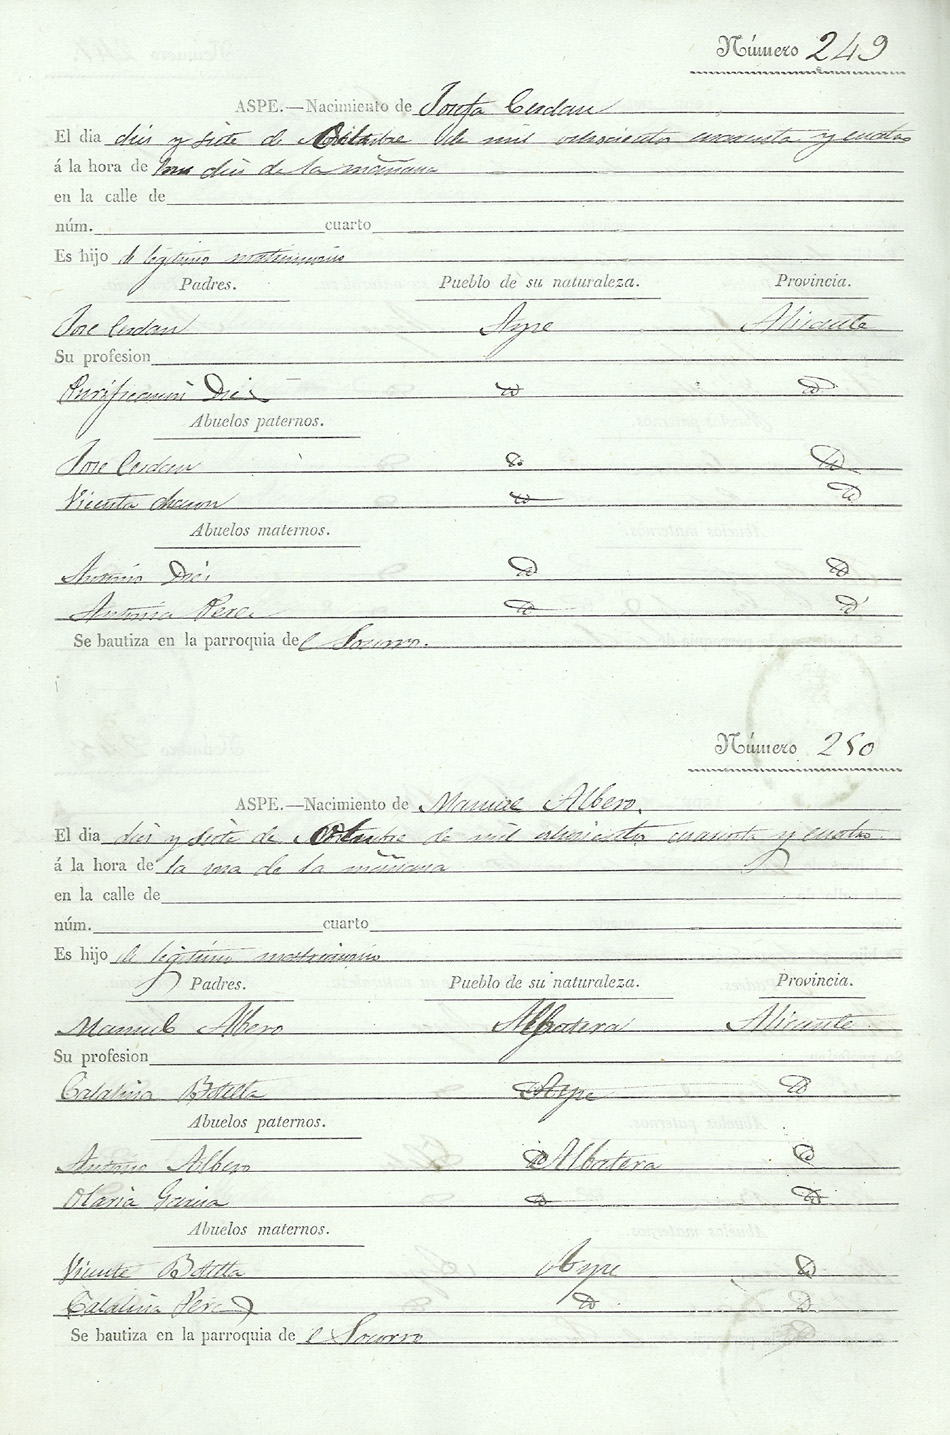 Número 249
ASPE.—Nacimiento de Josefa Cerdan
El dia diez y siete de Octubre de mil ochocientos cuarenta y cuatro
á la hora de las diez de la mañana
en la calle de
núm. cuarto
Es hijo de legitimo matrimonio
Padres. Pueblo de su naturaleza. Provincia.
Jose Cerdan Aspe Alicante
Su profesion
Purificacion Diez Id Id
Abuelos paternos.
Jose Cerdan Id Id
Vicenta Id Id
Abuelos maternos.
Antonio Diez Id Id
Antonia Perez Id Id
Se bautiza en la parroquia de el Socorro.
Número 250
ASPE.—Nacimiento de Manuel Albero.
El dia diez y siete de Octubre de mil ochocientos cuarenta y cuatro
á la hora de la una de la mañana
en la calle de
núm. cuarto
Es hijo de legitimo matrimonio
Padres. Pueblo de su naturaleza. Provincia.
Manuel Albero Albatera Alicante
Su profesion
Catalina Botella Aspe Id
Abuelos paternos.
Antonio Albero Albatera Id
Maria Garcia Id Id
Abuelos maternos.
Vicente Botella Aspe Id
Catalina Perez Id Id
Se bautiza en la parroquia de el Socorro